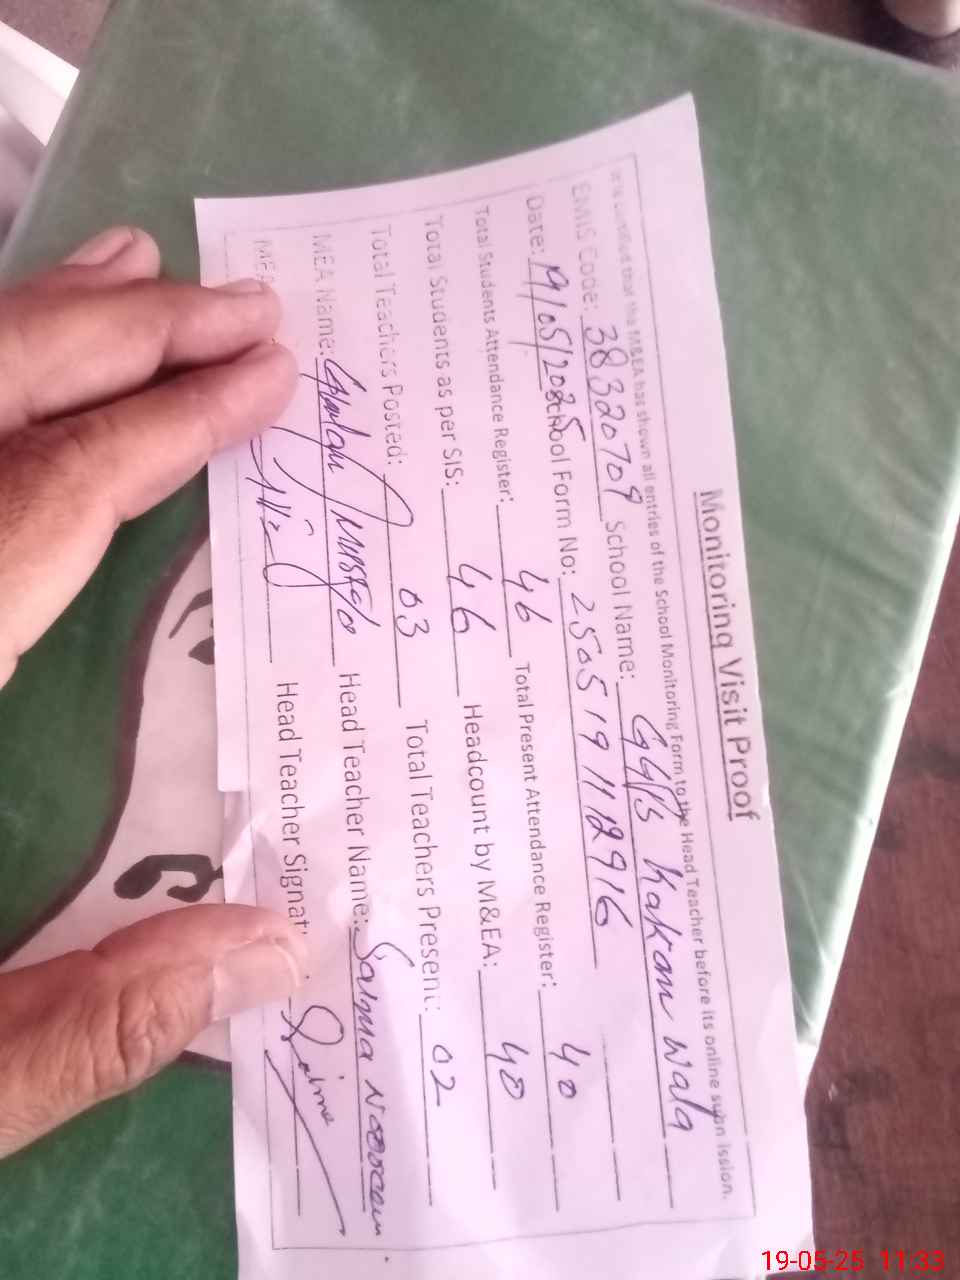 Monitoring Visit Proof
certified that the M&EA has shown all entries of the School Monitoring Form to the Head Teacher before its online submission.
EMIS Code: 38320709 School Name: GGPS Kakan wala
Date: 19/05/2025 School Form No: 2505191112916
Total Students Attendance Register: 46 Total Present Attendance Register: 40
Total Students as per SIS: 46 Headcount by M&EA: 40
Total Teachers Posted: 03 Total Teachers Present: 02
MEA Name: Ghulam Head Teacher Name: Salma Noreen
MEA Head Teacher Signat Salma
19-05-25 11:33